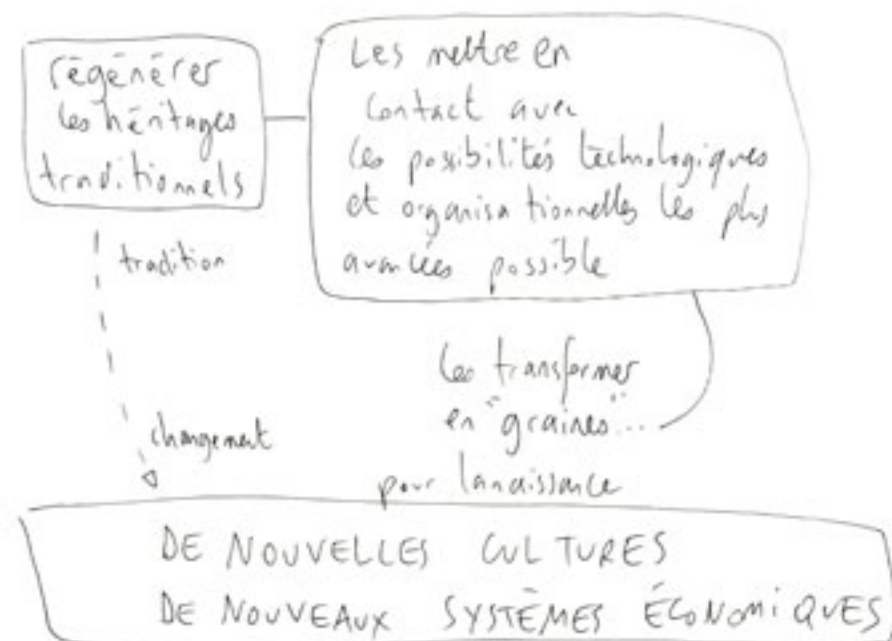 régénérer
les héritages
traditionnels
Les mettre en
contact avec
les possibilités technologiques
et organisationnelles les plus
avancées possible
tradition
changement
les transformer
en "graines"...
pour la naissance
DE NOUVELLES CULTURES
DE NOUVEAUX SYSTÈMES ÉCONOMIQUES